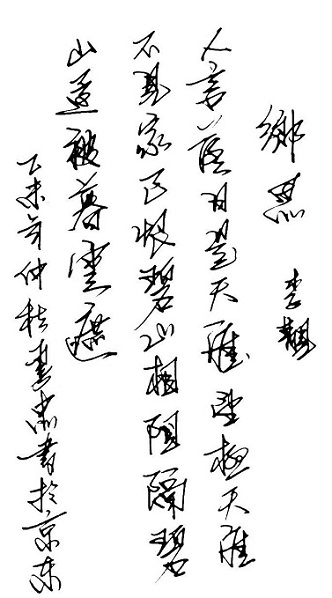 鄉思 李覯
人言落日是天涯望極天涯
不見家已恨碧山相阻隔碧
山還被暮雲遮
乙未年仲秋書於京東